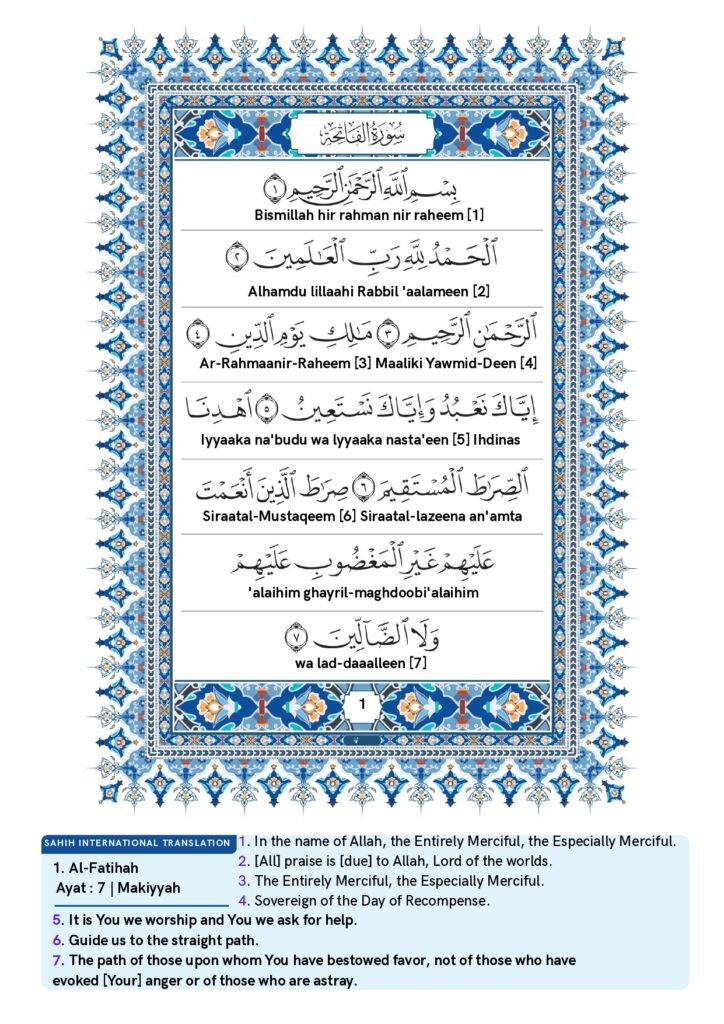 سُورَةُ الفَاتِحَةِ
بِسْمِ ٱللَّهِ ٱلرَّحْمَٰنِ ٱلرَّحِيمِ ١
Bismillah hir rahman nir raheem [1]
ٱلْحَمْدُ لِلَّهِ رَبِّ ٱلْعَٰلَمِينَ ٢
Alhamdu lillaahi Rabbil 'aalameen [2]
ٱلرَّحْمَٰنِ ٱلرَّحِيمِ ٣ مَٰلِكِ يَوْمِ ٱلدِّينِ ٤
Ar-Rahmaanir-Raheem [3] Maaliki Yawmid-Deen [4]
إِيَّاكَ نَعْبُدُ وَإِيَّاكَ نَسْتَعِينُ ٥ ٱهْدِنَا
Iyyaaka na'budu wa lyyaaka nasta'een [5] Ihdinas
ٱلصِّرَٰطَ ٱلْمُسْتَقِيمَ ٦ صِرَٰطَ ٱلَّذِينَ أَنْعَمْتَ
Siraatal-Mustaqeem [6] Siraatal-lazeena an'amta
عَلَيْهِمْ غَيْرِ ٱلْمَغْضُوبِ عَلَيْهِمْ
'alaihim ghayril-maghdoobi'alaihim
وَلَا ٱلضَّآلِّينَ ٧
wa lad-daaalleen [7]
1
٧
SAHIH INTERNATIONAL TRANSLATION
1. Al-Fatihah
Ayat : 7 | Makiyyah
1. In the name of Allah, the Entirely Merciful, the Especially Merciful.
2. [All] praise is [due] to Allah, Lord of the worlds.
3. The Entirely Merciful, the Especially Merciful.
4. Sovereign of the Day of Recompense.
5. It is You we worship and You we ask for help.
6. Guide us to the straight path.
7. The path of those upon whom You have bestowed favor, not of those who have
evoked [Your] anger or of those who are astray.